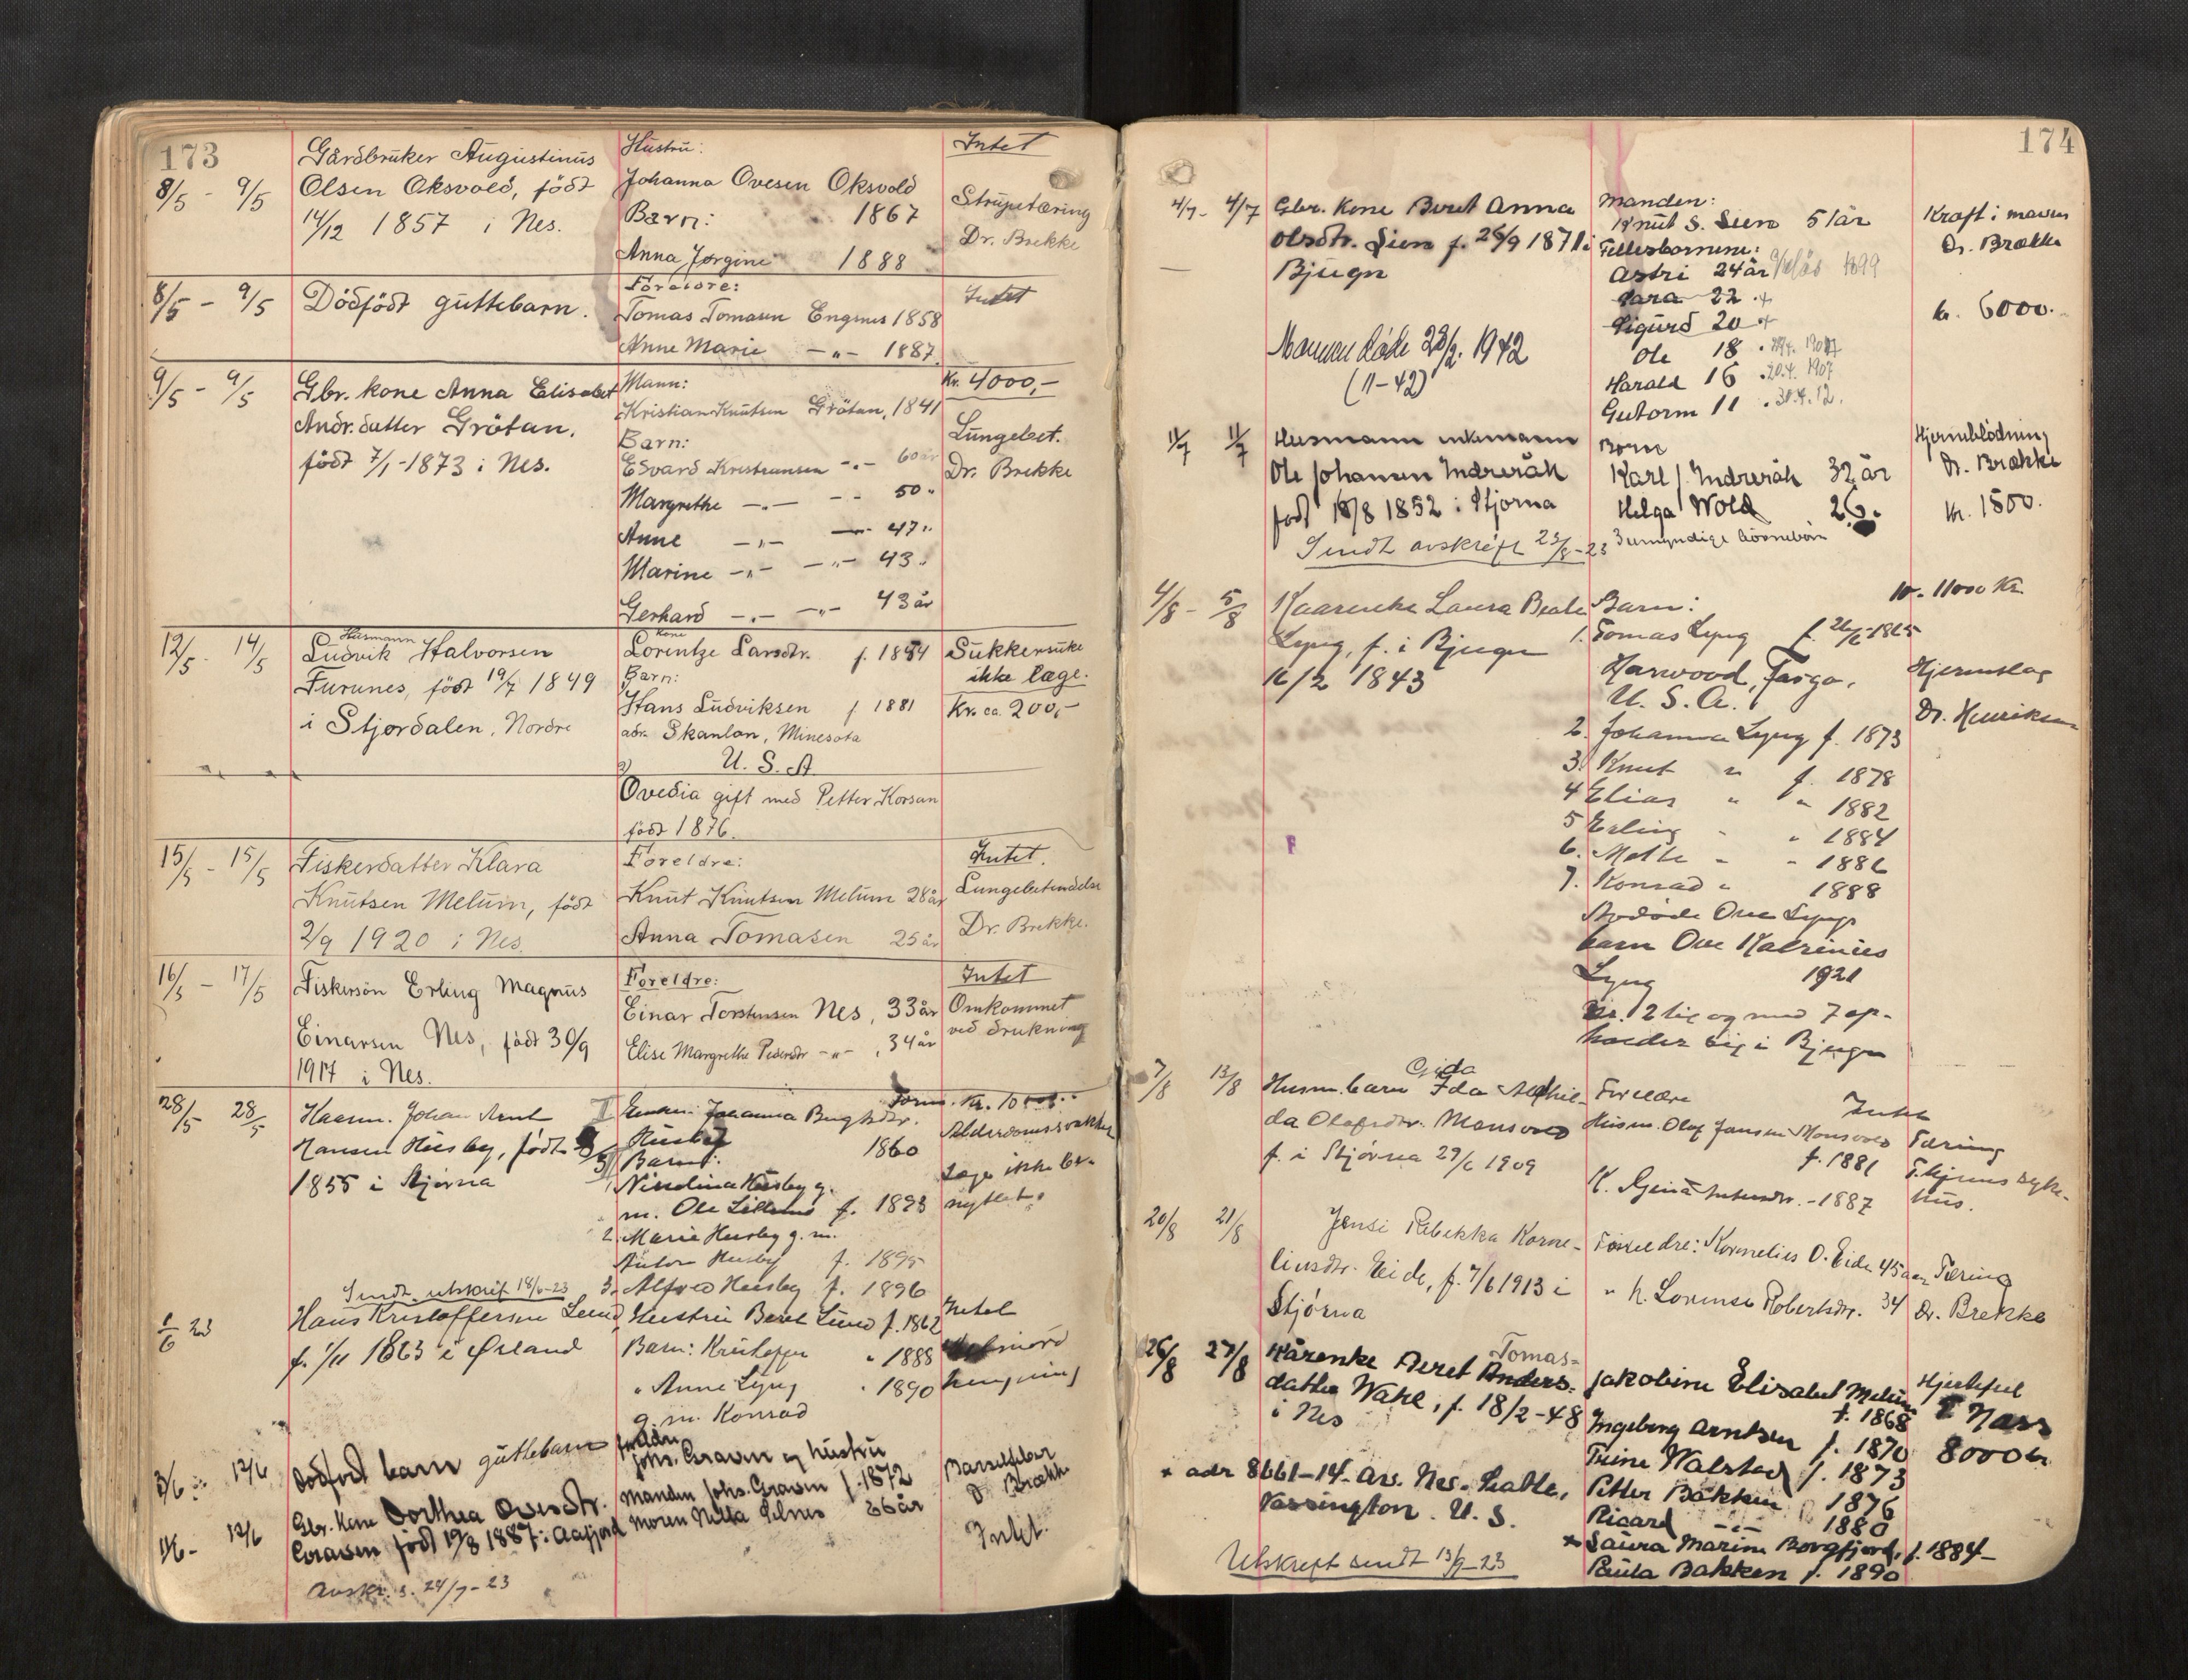 173
8/5 - 9/5
Gårdbruker Augustinus
Olsen Oksvold, född
14/12 1857 i Nes.
Hustru:
Johanna Ovesen Oksvold
1867
Barn:
Anna Jørgine 1888
Intet
Strupetæring
Dr. Brekke
8/5 - 9/5
Dödfödt guttebarn.
Foreldre:
Tomas Tomasen Engsnes 1858
Anne Marie -"- 1887.
Intet
9/5 - 9/5
Gbr. kone Anna Elisabet
Andr. datter Grötan.
född 7/1-1873 i Nes.
Mann:
Kristian Knutsen Grötan, 1841
Barn:
Edvard Kristiansen -"- 60 år
Margrethe -"- -"- 50 "
Anne -"- -"- 47 "
Marine -"- -"- 43 "
Gerhard -"- -"- 43 år
Kr. 4000,-
Lungebet.
Dr. Brekke
12/5 - 14/5
Husmann
Ludvik Halvorsen
Furunes, född 19/7 1849
i Stjordalen, Nordre
kone
Lorentze Larsdtr. f. 1854
Barn:
Hans Ludviksen f 1881
adr. Skanlan, Minesota
U. S. A.
2)
Ovedia gift med Petter Korsan
född 1876.
Sukkersyke
ikke læge.
Kr. ca. 200,-
15/5 - 15/5
Fiskerdatter Klara
Knutsen Melum, född
2/9 1920 i Nes.
Foreldre:
Knut Knutsen Melum 28 år
Anna Tomasen 25 år
Intet.
Lungebetendelse
Dr. Brekke.
16/5 - 17/5
Fiskersön Erling Magnus
Einarsen Nes, född 30/9
1917 i Nes.
Foreldre:
Einar Torstensen Nes, 33 år
Elise Margrethe Pedersdtr -"-, 34 år
Intet
Omkommet
ved drukning
28/5 28/5
Johan Arnt
Hansen Husby, født
1855 i Stjørna
Johanna
Husby 1860
Barn:
1. Husby g.
m. Ole f. 1893
2. Marie Husby g. m.
Husby f. 1895
3. Alfred Husby f. 1896
Alderdomssvakhet
Læge ikke be-
nyttet.
Sendt utskrift 18/6-23
1/6 23
Hans Kristoffersen Lund
f. 1/11 1863 i Ørland
Hustru Beret Lund f. 1862
Barn: Kristoffer " 1888
" Anne Lyng " 1890
g. m. Konrad
Intet
Selvmord
hengning
3/6 12/6
Dødfødt barn guttebarn
Foreldre
Johs. Graven og hustru
12/6
Gbr. kone Dorthea Ovesdtr.
Graven född 19/8 1887 i Aafjord
Manden Johs. Graven f. 1872
Moren 36 år
Barselfeber
D Brækk
Intet.
Avskr. s. 24/7-23
174
4/7 - 4/7
Gbr. kone Beret Anna
Olsdtr. Sien f. 26/9 1871 i
Bjugn
Mannen døde 28/2. 1942
(11-42)
Manden:
Knut S. Sien 51 år
Fellesbarnene:
Astri 24 år 1899
Sara 22 . +
Sigurd 20 +
Ole 18 .
Harald 16 . 20.4. 1907
Gutorm 11 . 30.4. 12.
Kræft i maven
Dr. Brække
kr. 6000.
11/7 11/7
Husmann enkemann
Ole Johansen Indreråk
født 18/8 1852 i Stjørna
Sendt avskrift 23/8-23
Born
Karl J. Indreråk 32 år
Helga Wold 26.
3 umyndige
Hjerneblødning
Dr. Brække
kr. 1500.
4/8 - 5/8
Kaarenke Laura Beate
Lyng, f. i Bjugn
16/2 1843
Barn:
1. Tomas Lyng f. 26/6-1865
Harwood, Fargo.
U. S. A.
2. Johanna Lyng f. 1873
3. Knut " f. 1878
4 Elias " " 1882
5 Erling " " 1884
6. Mette " " 1886
7. Konrad " 1888
Avdøde Ove Lyngs
barn Ove Katrinius
Lyng 1921
Nr. 2 til og med 7 op-
holder sig i Bjugn
10-11000 Kr.
Hjerneslag
Dr. Henriksen
7/8 13/8
Gida
Husm. barn Ida Mathil-
da Olafsdtr. Monsvold
f. i Stjørna 29/6 1909
Foreldre
Husm. Olaf Jansen Monsvold
f. 1881
1887
Intet
Tæring
T.hjems syke-
hus.
20/8 21/8
Jensi Rebekka Korne-
liusdtr. Eide, f. 7/6 1913 i
Stjørna
Foreldre: Kornelius O. Eide 45 aar
" h. Lorense Robertsdtr. 34
Tæring
Dr. Brekke
26/8 27/8
Tomas-
Kårenke Beret Anders-
datter Wake, f. 18/2-48
i Nes
Jakobine Elisabet Melum
f. 1868
Ingeborg Arntsen f. 1870
Trine Walstad f. 1873
Petter Bakken f. 1876
Ricard -"- 1880
x Laura Marine Borgfjord, f. 1884-
Paula Bakken f. 1890
Hjertefeil
D Næss
8000 kr.
x adr 8661-14- Av. Nes. Seatle,
Vassington. U. S.
Utskrift sendt 13/9-23